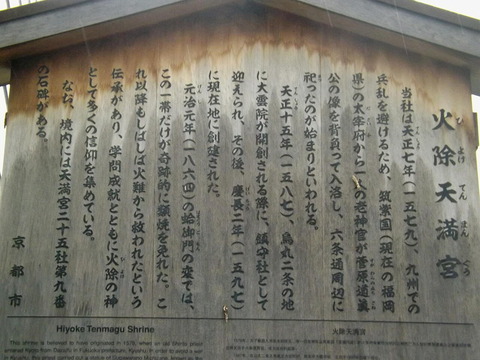 火除天満宮
ひ よけ てん まん ぐう
当社は天正七年（一五七九）、九州での
兵乱を避けるため、筑紫国（現在の福岡
県）の太宰府から一人の老神官が菅原道真
公の像を背負って入洛し、六条通周辺に
祀ったのが始まりといわれる。
天正十五年（一五八七）、烏丸二条の地
に大雲院が開創される際に、鎮守社として
迎えられ、その後、慶長二年（一五九七）
に現在地に創建された。
元治元年（一八六四）の蛤御門の変では、
この一帯だけが奇跡的に類焼を免れた。こ
れ以降もしばしば火難から救われたという
伝承があり、学問成就とともに火除の神
として多くの信仰を集めている。
なお、境内には天満宮二十五社第九番
の石碑がある。
京都市
Hiyoke Tenmagu Shrine
This shrine is believed to have originated in 1579, when an old Shinto priest
火除天満宮